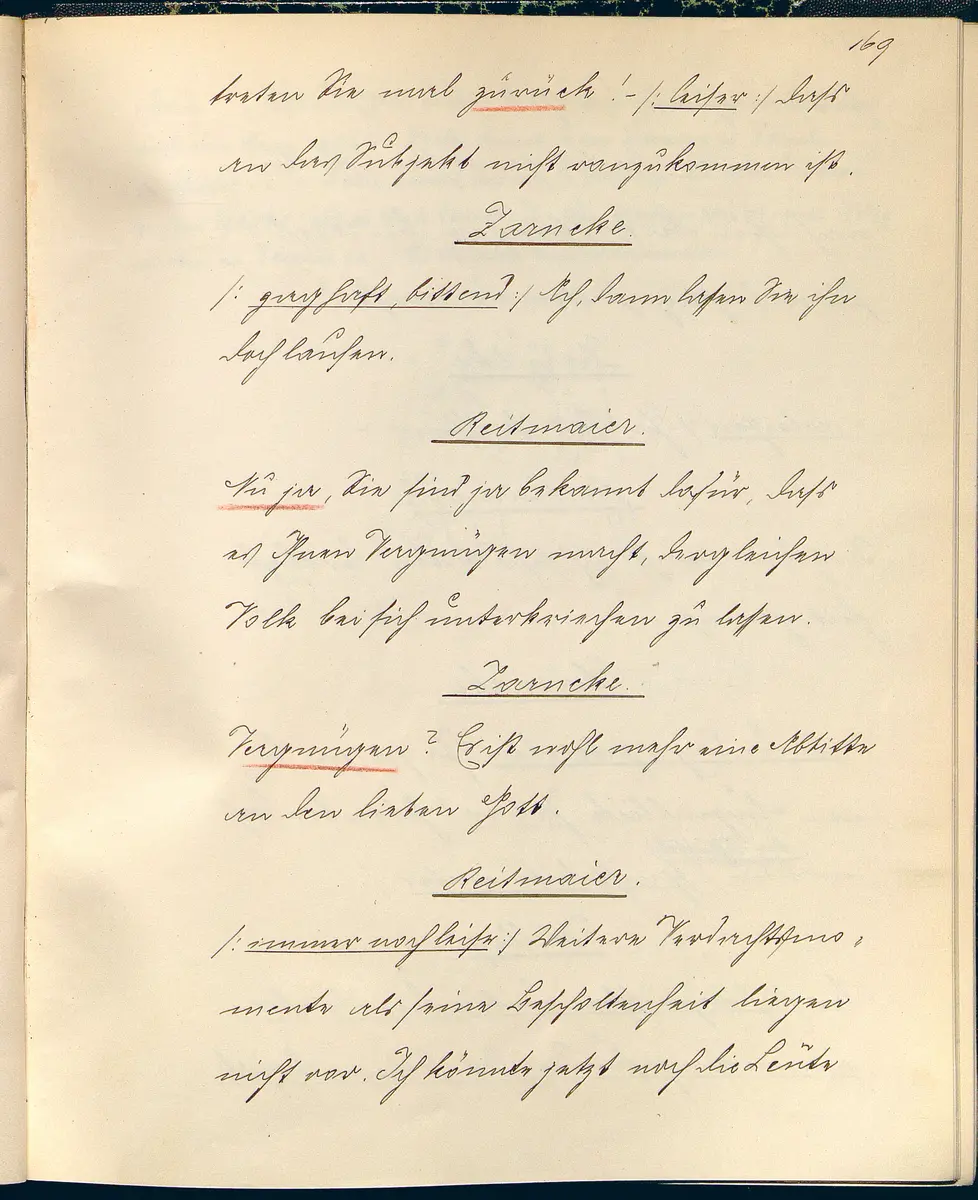 169
treten Sie mal zurück! – /: leiser :/ dass
an das Subjekt nicht ranzukommen ist.
Zarncke.
/: zaghaft, bittend :/ Ach, dann lassen Sie ihn
doch laufen.
Reitmaier.
Nu ja, Sie sind ja bekannt dafür, dass
es Ihnen Vergnügen macht, dergleichen
Volk bei sich unterkriechen zu lassen.
Zarncke.
Vergnügen? Es ist wohl mehr eine Abbitte
an den lieben Gott.
Reitmaier.
/: immer noch leise :/ Weitere Verdachtsmo-
mente als seine Bescholtenheit liegen
nicht vor. Ich könnte jetzt noch die Leute